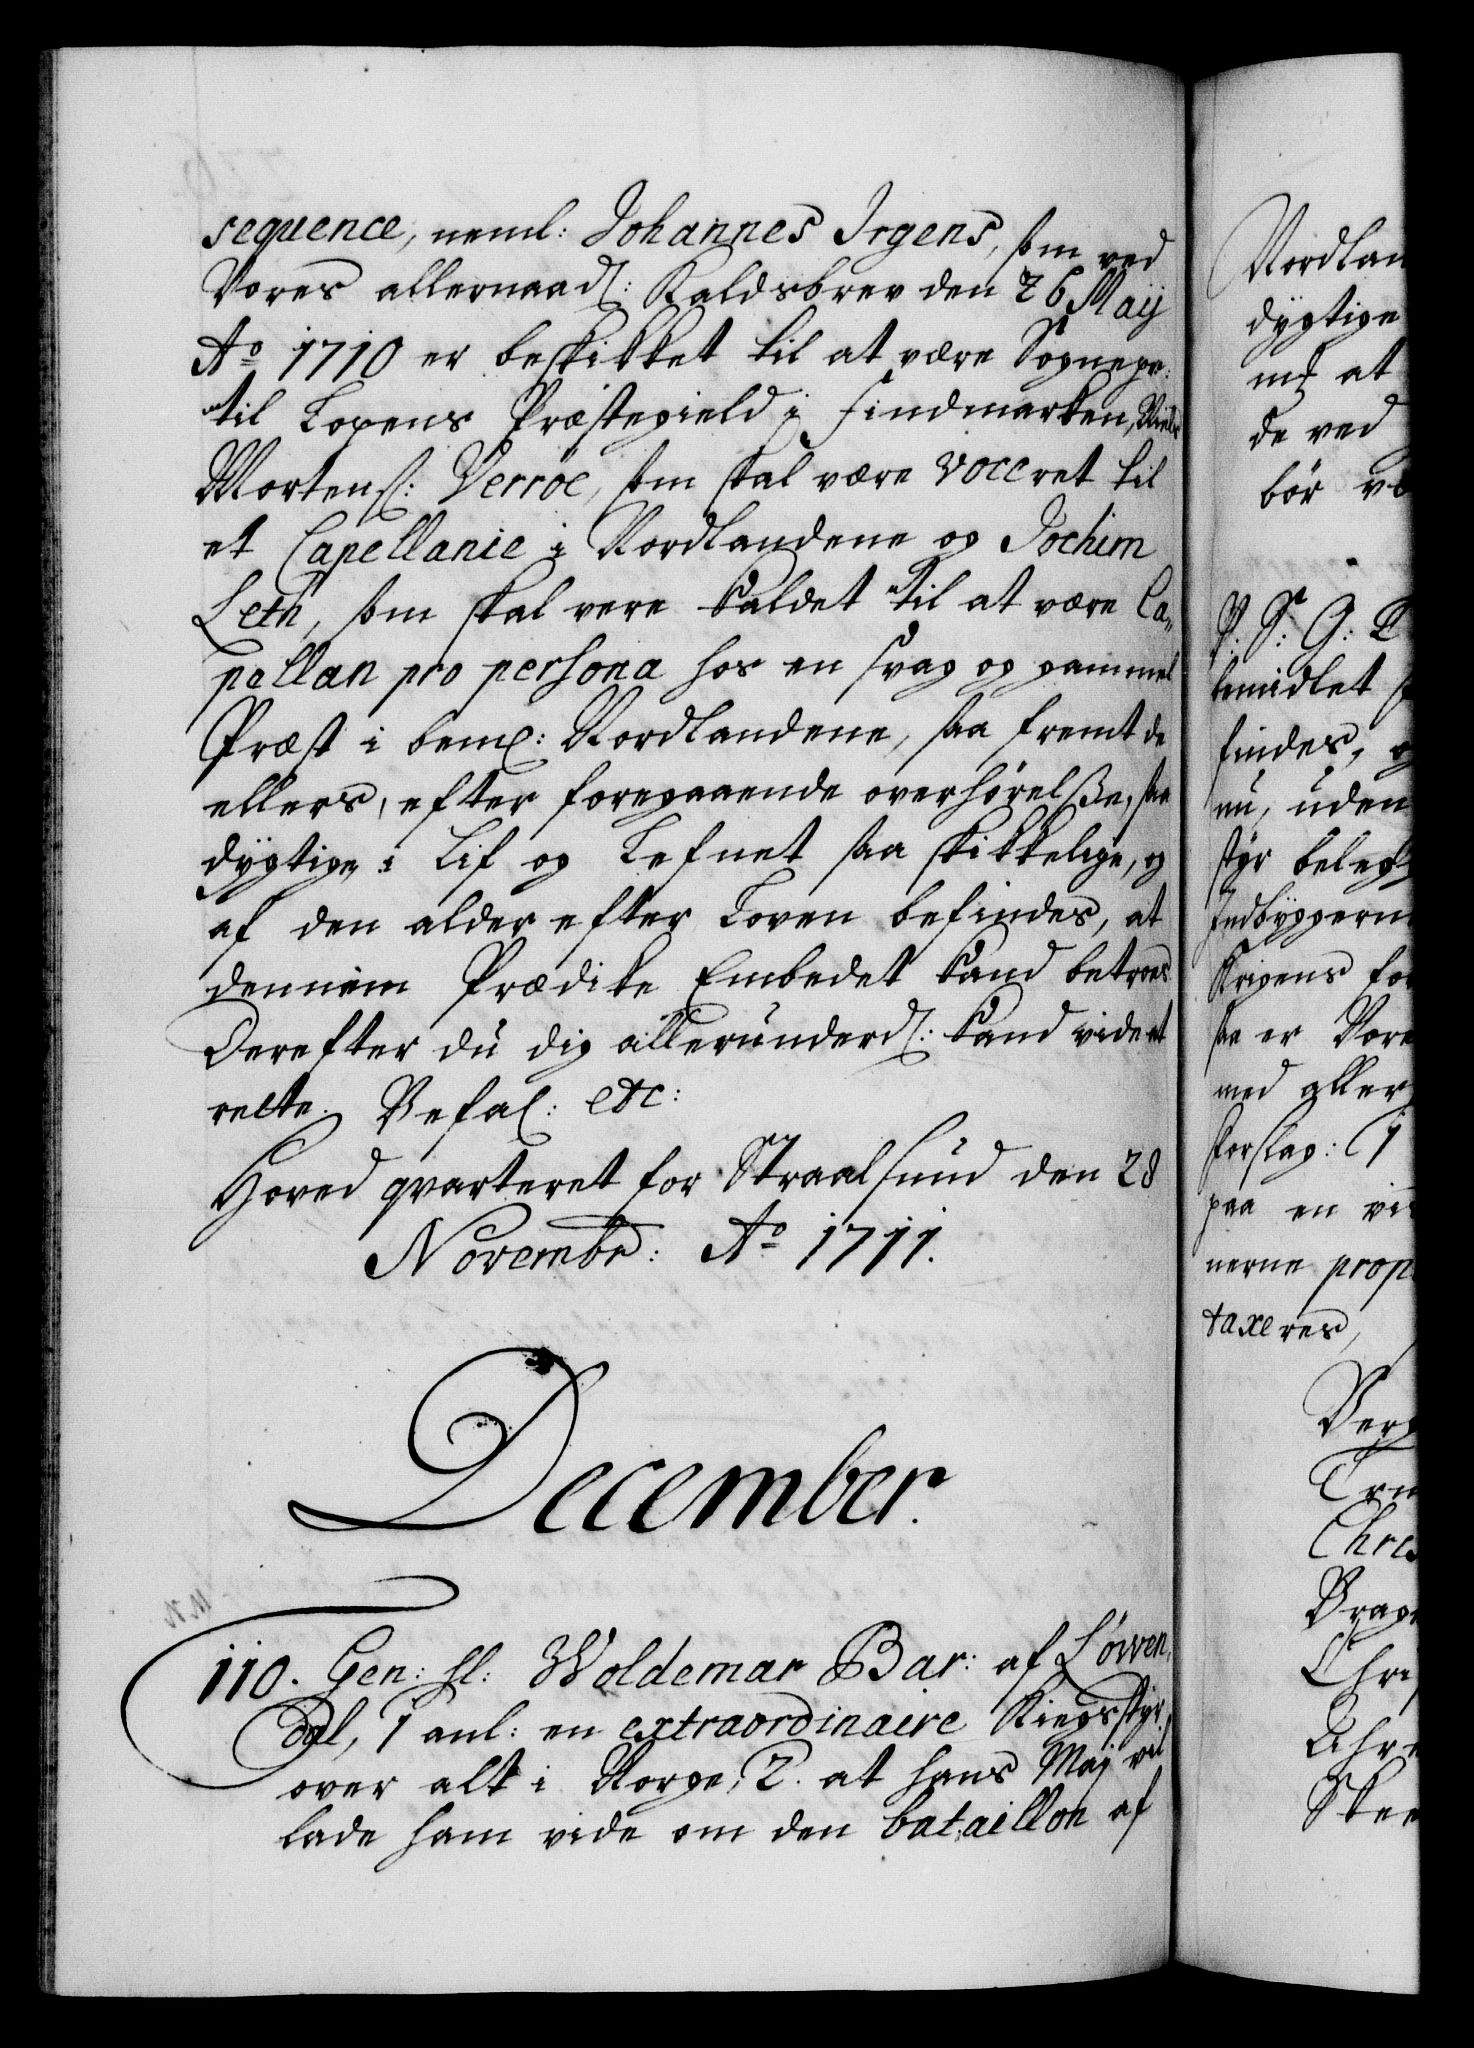 sequence, neml: Johannes Irgens, som ved
Vores allernaad: Kaldsbrev den 26 Maij
Ao 1710 er beskikket til at være Sognepr:
til Loppens Præstegield i Findmarken, Niels
Mortens: Verröe, som skal være voceret til
et Capellanie i Nordlandene og Jochim
Leth, som skal vere kaldet til at være Ca-
pellan pro persona hos en svag og gammel
Præst i bem: Nordlandene, saa fremt de
ellers, efter foregaaende overhørelsse, saa
dygtige i Lif og Lefnet saa skikkelige, og
af den alder efter Loven befindes, at
dennem Prædike Embedet kand betroes
Derefter du dig allerunderd: kand vide at
rette. Befal: etc:
Hoved qvarteret for Straalsund den 28
Novembr: Ao 1711.
December.
110. Gen: hl: Woldemar Bar: af Löwen-
dal, 1 anl: en extraordinaire Kriegsstyr
over alt i Norge, 2. at hans Maj vil
lade ham vide om den bataillon af
Nordlan
dygtige
at
de ved
bör
P: S: G: T
findes,
nu, uden
styr beleg
Indbyggern
Krigens for
saa er Vore
med aller
forslag: 1
paa en vis
nerne prop
taxeres,
Berg
Chris
Brag
Chri
Skee